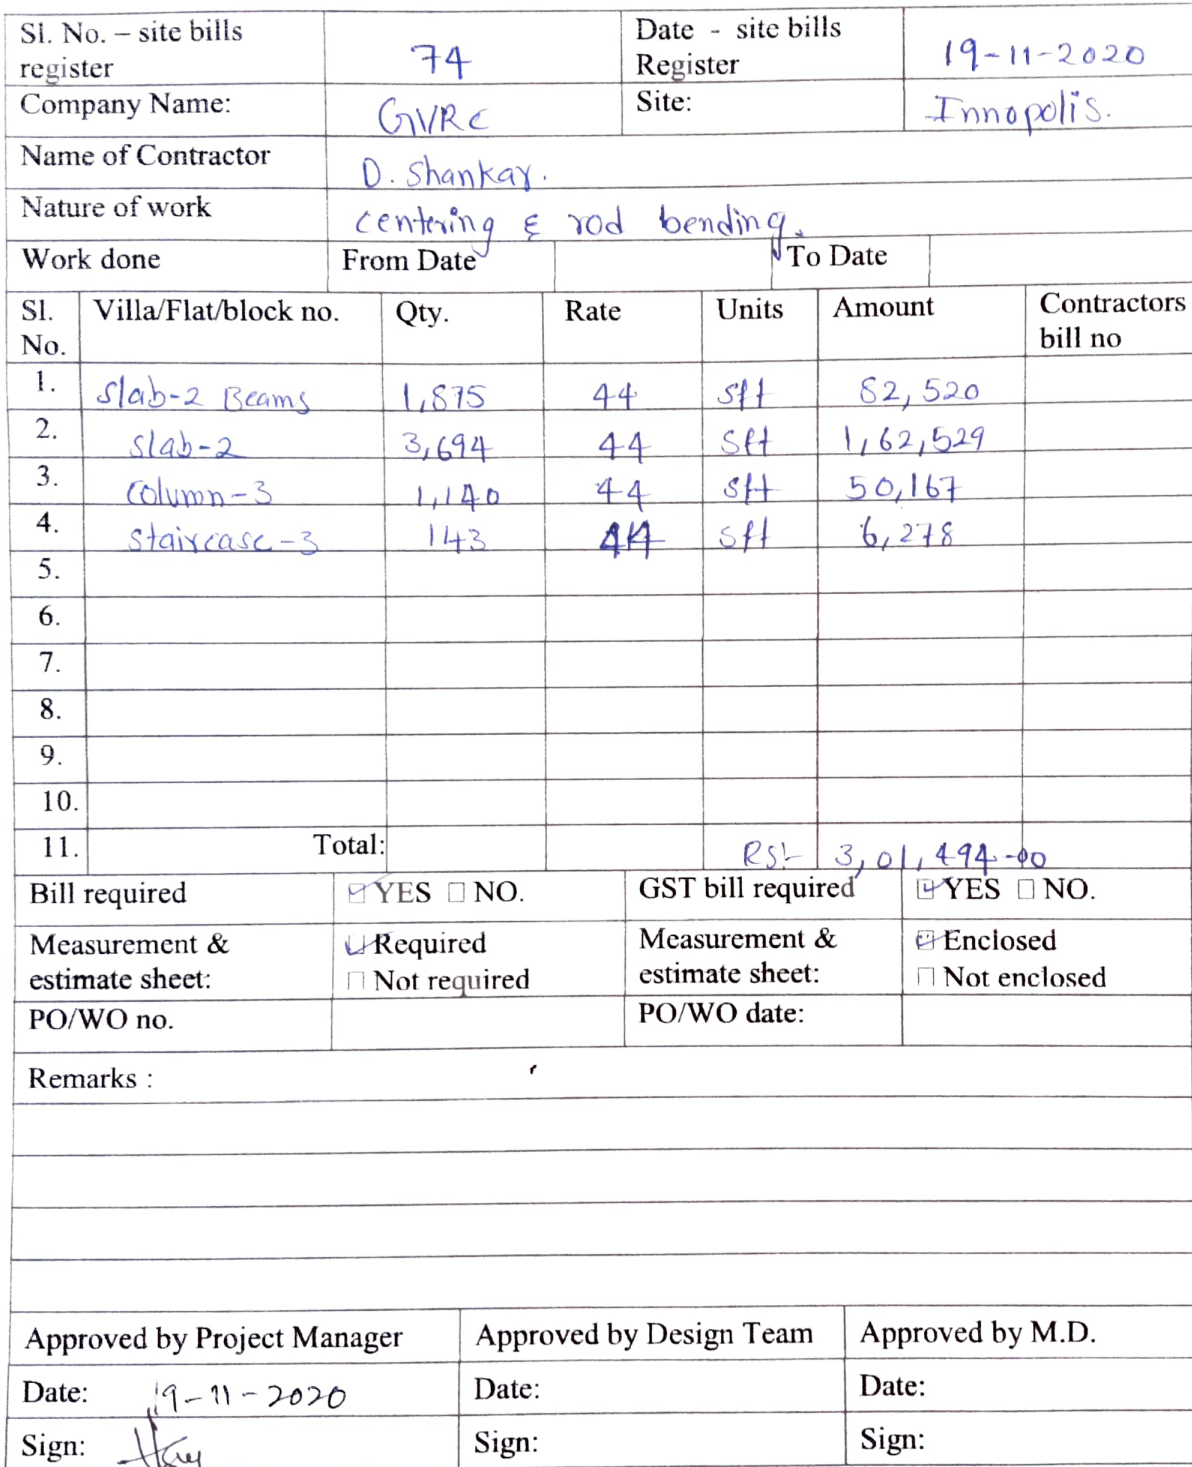 Sl. No. – site bills register 74 Date - site bills Register 19-11-2020
Company Name: GVRC Site: Innopolis.
Name of Contractor D. Shankar.
Nature of work centering & rod bending.
Work done From Date To Date
Sl. No. Villa/Flat/block no. Qty. Rate Units Amount Contractors bill no
1. Slab-2 Beams 1,875 44 sft 82,520
2. Slab-2 3,694 44 sft 1,62,529
3. Column-3 1,140 44 sft 50,167
4. Staircase-3 143 44 sft 6,278
5.
6.
7.
8.
9.
10.
11. Total: RS:- 3,01,494-00
Bill required ☑ YES ☐ NO. GST bill required ☑ YES ☐ NO.
Measurement & estimate sheet: ☑ Required ☐ Not required Measurement & estimate sheet: ☑ Enclosed ☐ Not enclosed
PO/WO no. PO/WO date:
Remarks :
Approved by Project Manager Approved by Design Team Approved by M.D.
Date: 19-11-2020 Date: Date:
Sign: Sign: Sign: